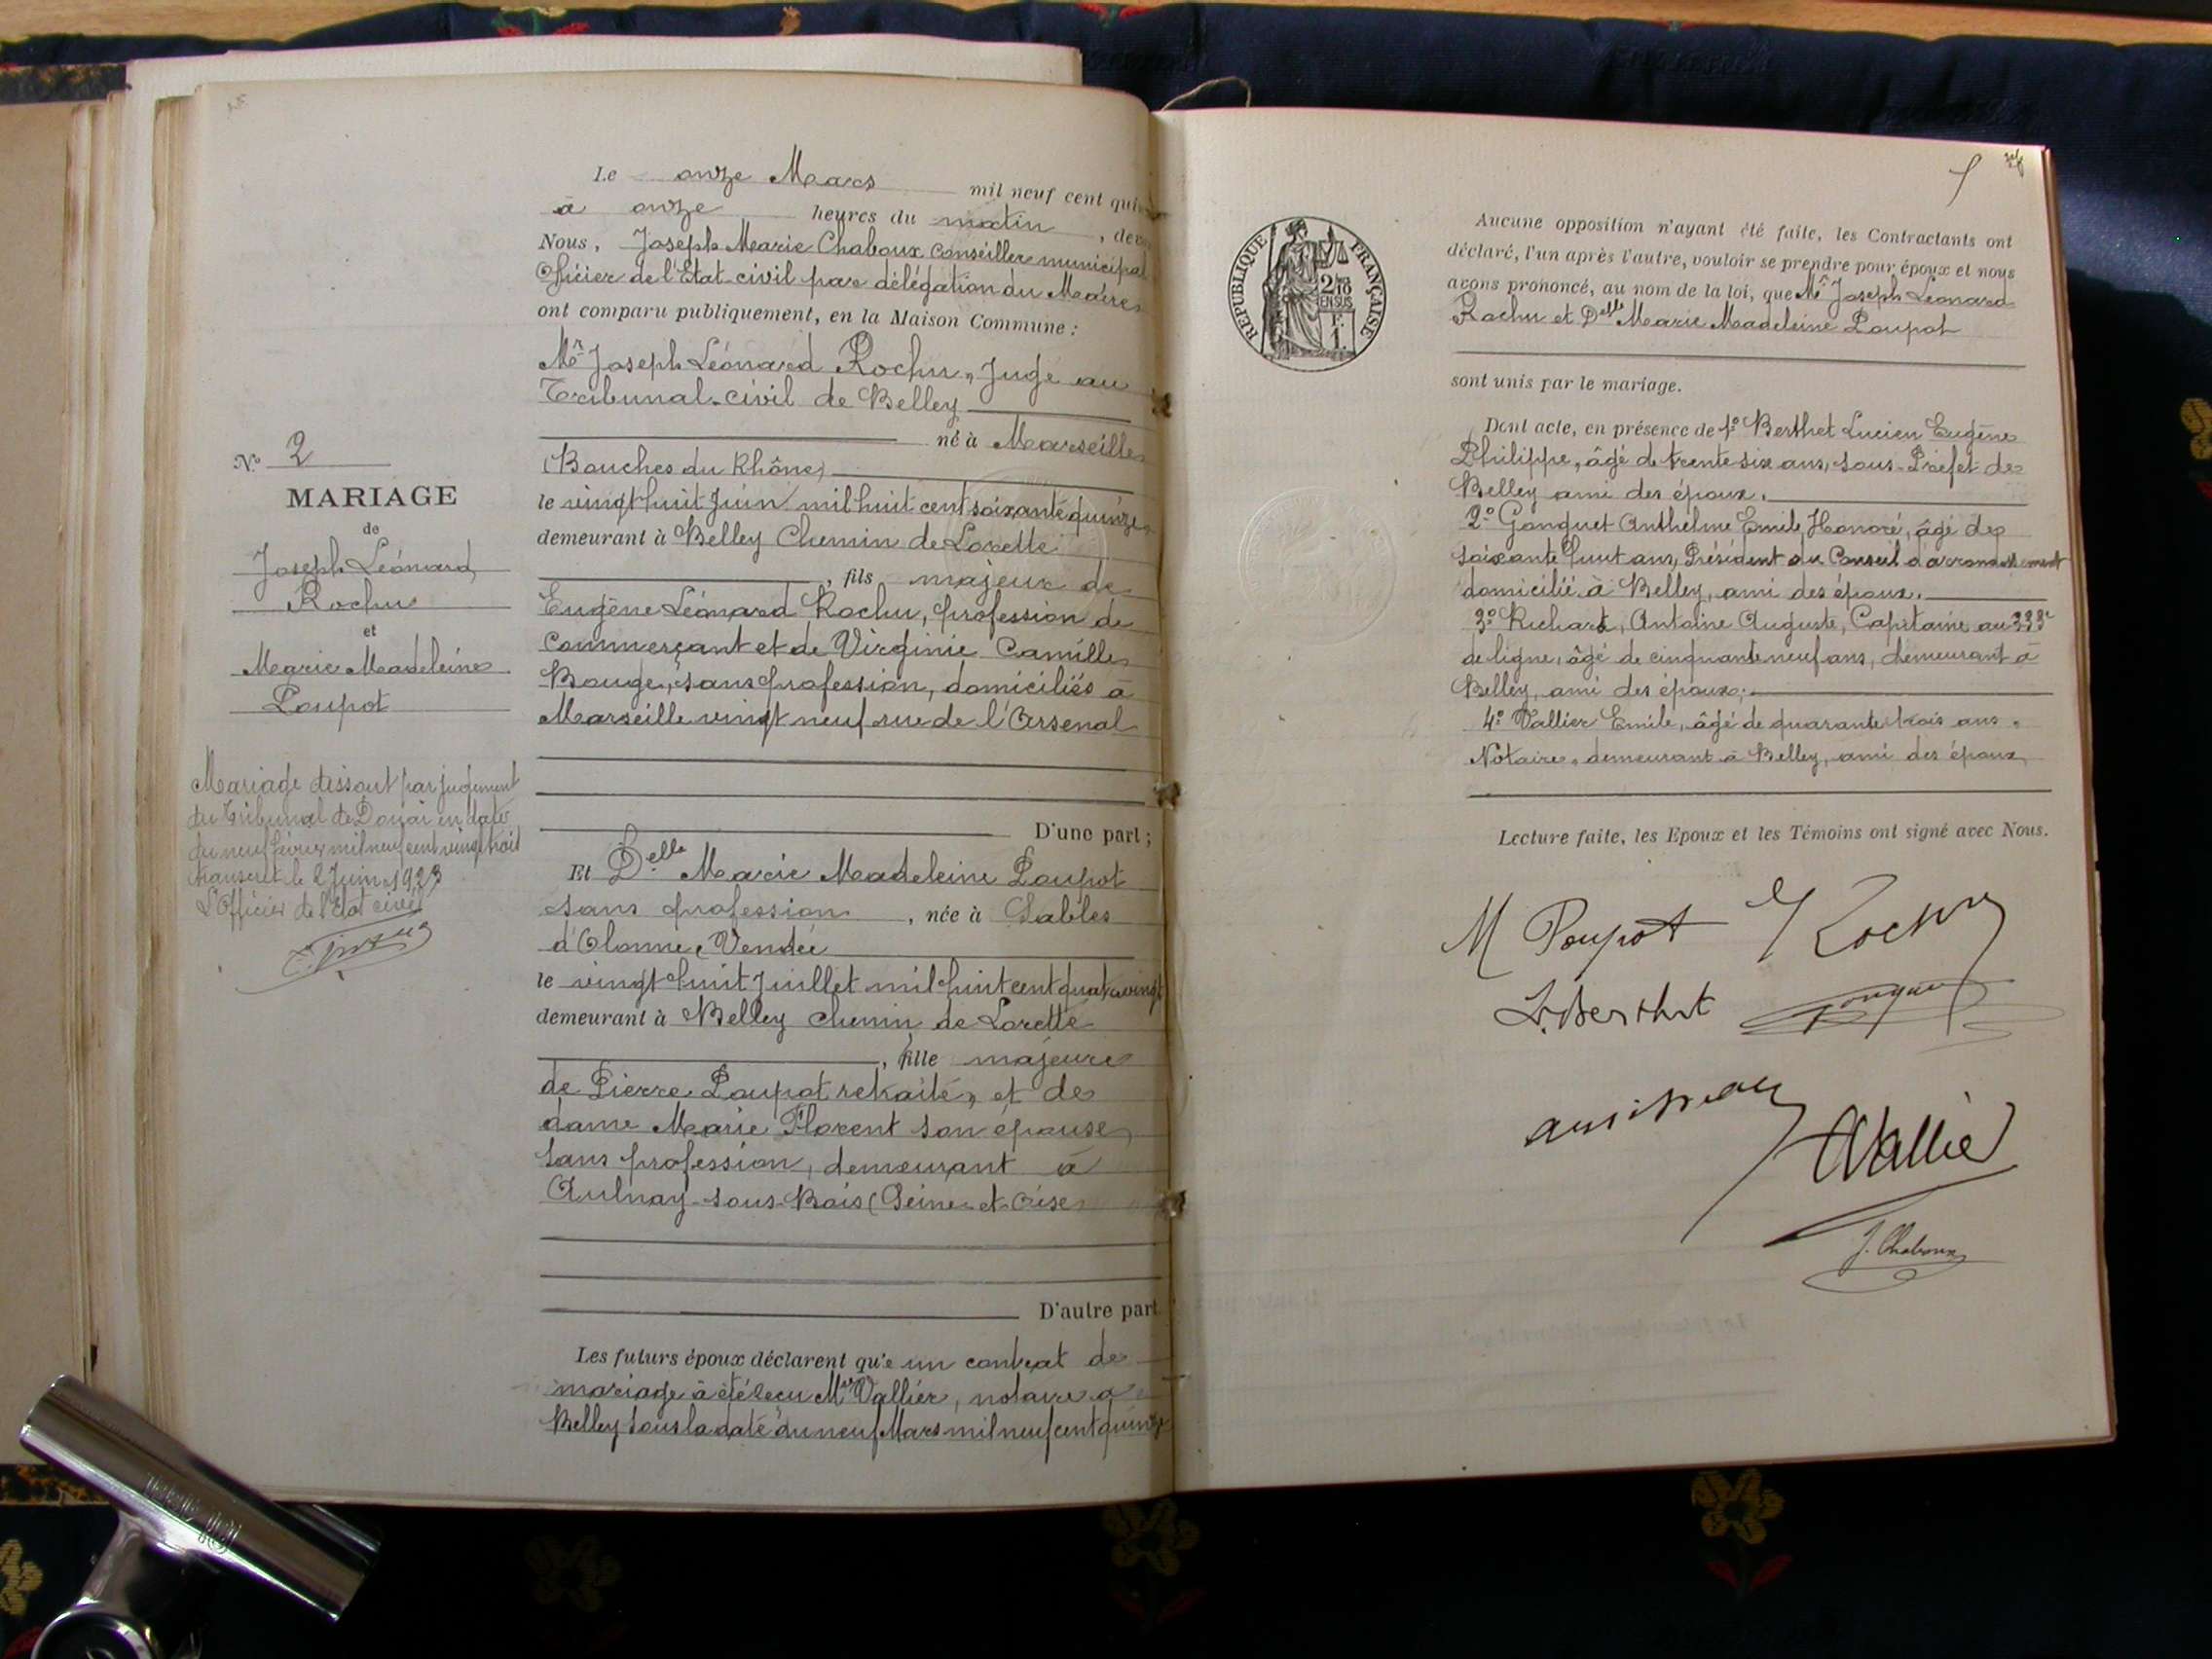 Le onze Mars mil neuf cent
à onze heures du matin,
Nous, Joseph Marie Chaboux Conseiller municipal
Officier de l'Etat-civil par délégation du Maire
ont comparu publiquement, en la Maison Commune :
Mr Joseph Léonard Rochu, Juge au
Tribunal-civil de Belley
né à Marseille
(Bouches du Rhône)
le vingt huit Juin mil huit cent soixante quinze
demeurant à Belley Chemin de Lorette
, fils majeur de
Eugène Léonard Rochu, profession de
Commerçant et de Virginie Camille
Bouge, sans profession, domiciliés à
Marseille vingt neuf rue de l'Arsenal
D'une part ;
Et Delle Marie Madeleine Poupot
sans profession, née à Sables
d'Olonne, Vendée
le vingt huit Juillet mil huit cent quatre vingt
demeurant à Belley chemin de Lorette
, fille majeure
de Pierre Poupot retraité, et de
dame Marie Florent son épouse,
sans profession, demeurant à
Aulnay-sous-Bois (Seine-et-Oise
D'autre part
Les futurs époux déclarent qu'e un contrat de
mariage à été recu Me Vallier, notaire à
Belley sous la date du neuf Mars mil neuf cent quinze
No 2
MARIAGE
de
Joseph Léonard
Rochu
et
Marie Madeleine
Poupot
Mariage dissout par jugement
du Tribunal de Douai en date
du neuf février mil neuf cent vingt trois
transcrit le 2 Juin 1923
L'Officier de l'Etat civil
REPUBLIQUE FRANÇAISE
2/10
EN SUS
F.
1.
Aucune opposition n'ayant été faite, les Contractants ont
déclaré, l'un après l'autre, vouloir se prendre pour époux et nous
avons prononcé, au nom de la loi, que Mr Joseph Léonard
Rochu et Delle Marie Madeleine Poupot
sont unis par le mariage.
Dont acte, en présence de 1° Berthet Lucien Eugène
Philippe, âgé de trente six ans, sous-Préfet de
Belley ami des époux.
2° Gonguet Anthelme Emile Honoré, âgé de
soixante huit ans, Président du Conseil d'arrondissement
domicilié à Belley, ami des époux.
3° Richard, Antoine Auguste, Capitaine au 333e
de ligne, âgé de cinquante neuf ans, demeurant à
Belley, ami des époux;
4° Vallier Emile, âgé de quarante trois ans,
Notaire, demeurant à Belley, ami des époux
Lecture faite, les Epoux et les Témoins ont signé avec Nous.
M Poupot Rochu
L. Berthet Gonguet
Vallier
J. Chaboux